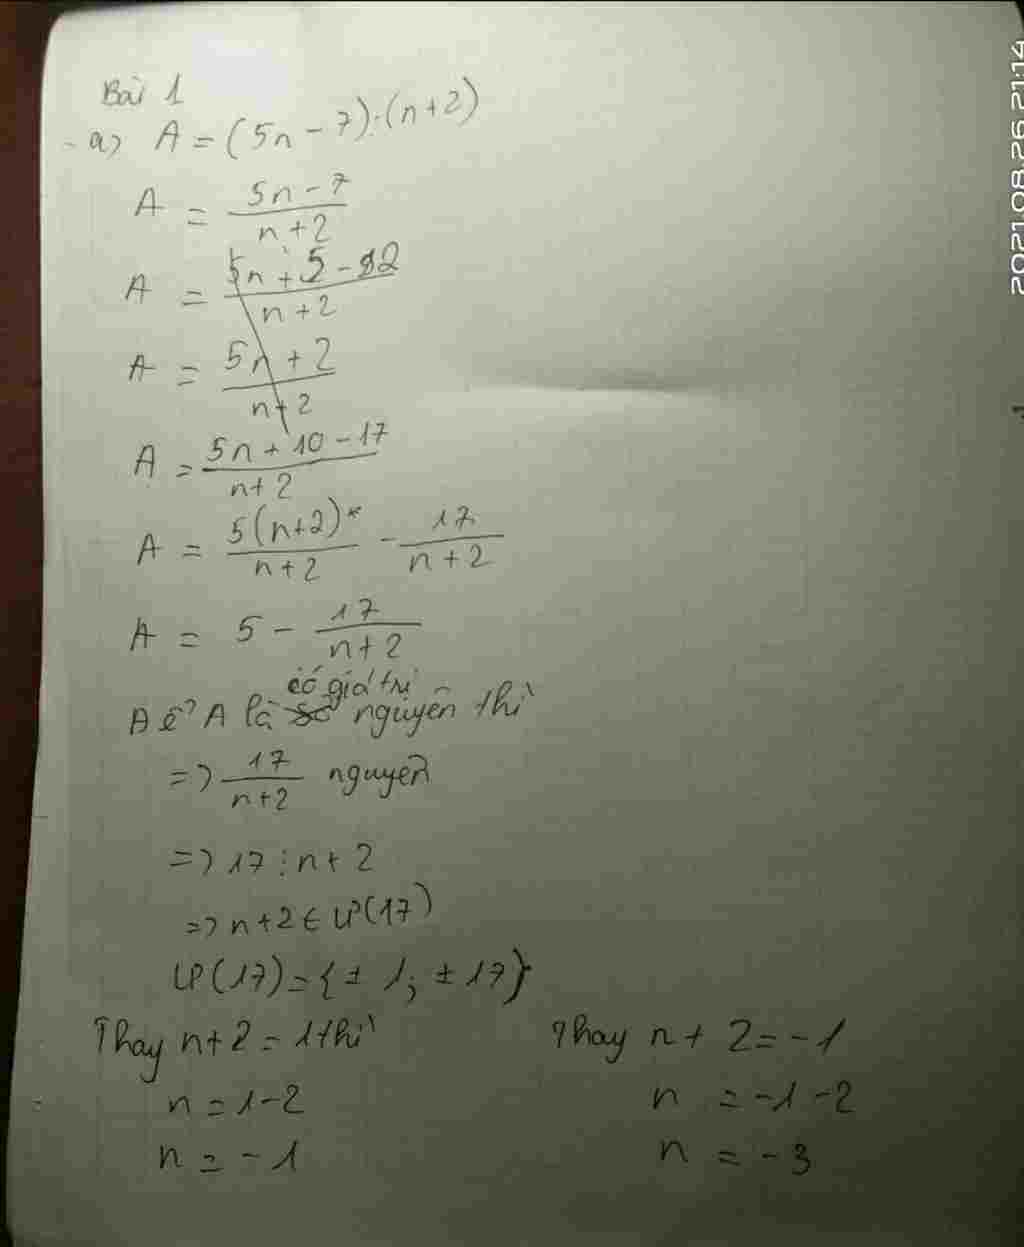 Bài 1
a) A = (5n - 7) : (n+2)
A = \frac{5n - 7}{n + 2}
A = \frac{5n + 5 - 12}{n + 2}
A = \frac{5n + 2}{n + 2}
A = \frac{5n + 10 - 17}{n + 2}
A = \frac{5(n+2)}{n+2} - \frac{17}{n+2}
A = 5 - \frac{17}{n+2}
có giá trị
Để A là số nguyên thì
=> \frac{17}{n+2} nguyên
=> 17 ⋮ n + 2
=> n + 2 ∈ Ư(17)
Ư(17) = {± 1; ± 17}
Thay n + 2 = 1 thì
n = 1 - 2
n = - 1
Thay n + 2 = -1
n = -1 - 2
n = -3
2021.08.26 21:14